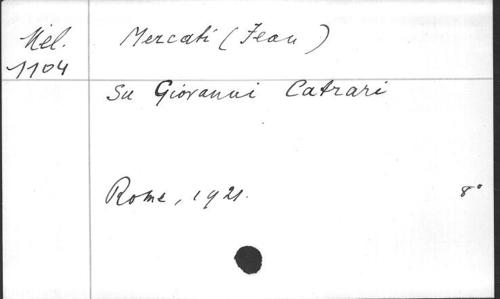 Mel.
1104
Mercati (Jean)
Su Giovanni Catrari
Rome, 1921.
8°